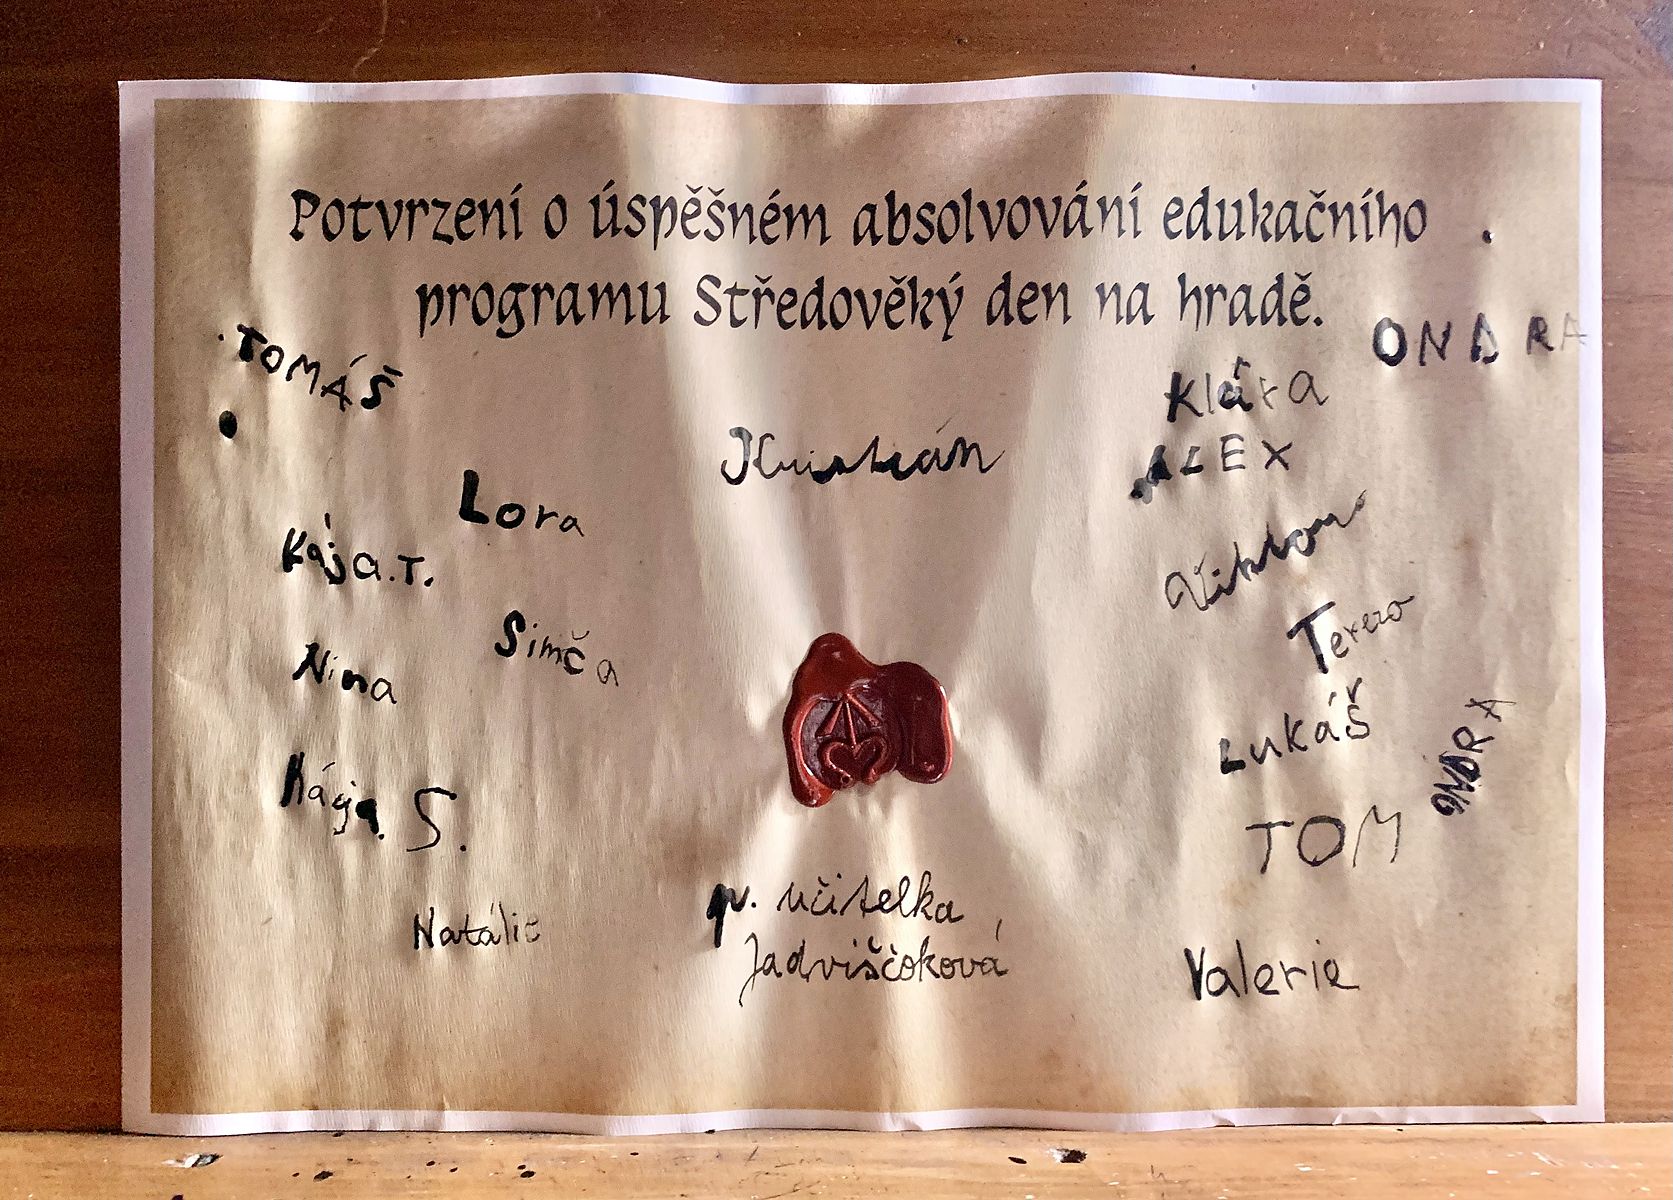 Potvrzení o úspěšném absolvování edukačního
programu Středověký den na hradě.
TOMÁŠ
ONDRA
Klára
Kristián
ALEX
Lora
Kája.T.
Viktor
Simča
Tereza
Nina
Lukáš
ONDRA
Kája. S.
TOM
Natálie
p. učitelka
Jadviščoková
Valerie